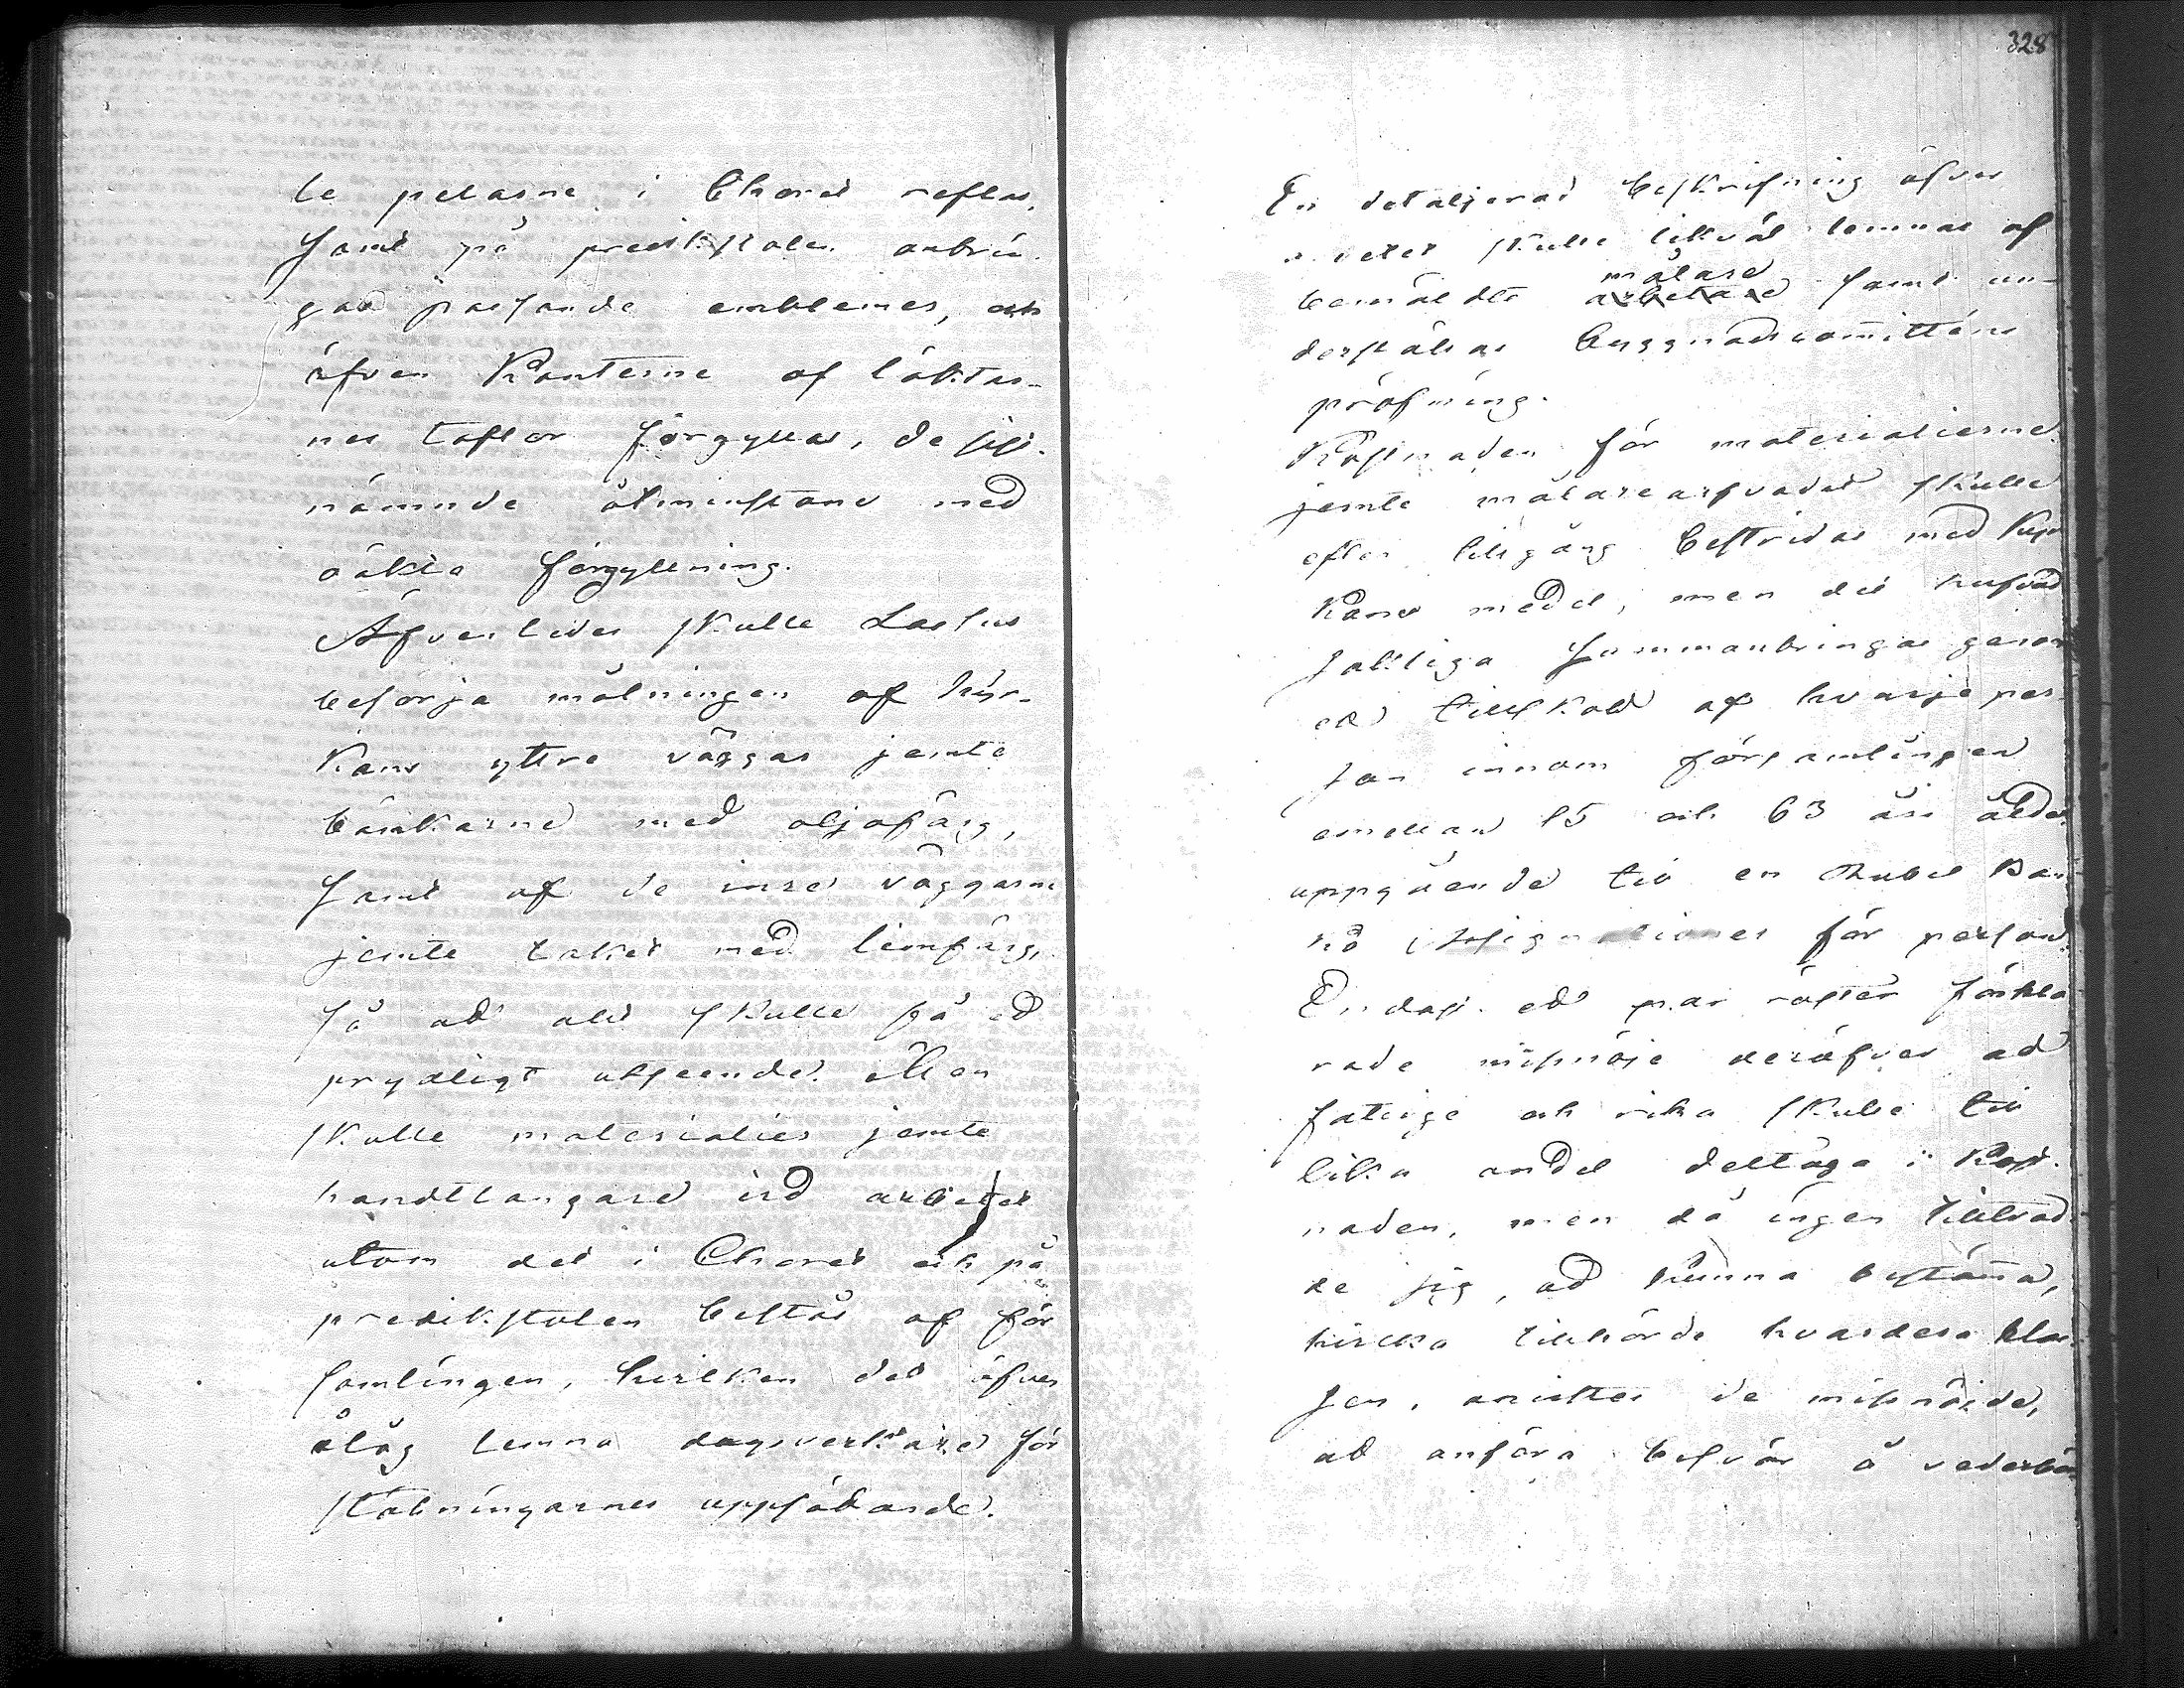 le pelarne i Choret reflas,
samt på predikstolen anbrin-
gas passande emblemer, och
äfven Kanterne af läktar-
nes taflor förgyllas, de sist-
nämnde åtminstone med
oäkta förgyllning.
Äfvenledes skulle
besörja målningen af kyr-
kans yttre väggar jemte
bänkarne med oljofärg,
samt af de inre väggarne
jemte taket med limfärg,
så att allt skulle få ett
prydligt utseende. Men
skulle materialier jemte
handtlangare vid arbetet
utom det i Choret och på
predikstolen bestås af för
samlingen, hvilken det äfven
ålåg lemna dagsverkare för
ställningarnes uppsättande.
328
En detaljerad beskrifning öfver
skulle likväl lemnas af
bemäldte arbetare målare samt un-
derställas Byggnadscomitténs
pröfning.
Kostnaden för materialierne
jemte målarearfvodet skulle
efter tillgång bestridas med Kyr
kans medel, men det hufvud
sakliga sammanbringas genom
ett tillskott af hvarje per-
son innom församlingen
emellan 15 och 63 års ålder
uppgående till en Rubel Ban
ko Assignationer för person.
Endast ett par röster förkla
rade missnöje deröfver att
fattige och rika skulle till
lika andel deltaga i Kost-
naden, men då ingen tilltrod
de sig, att kunna bestämma,
hvilka tillhörde hvardera klas
sen, de missnöjde,
att anföra besvär å vederbör